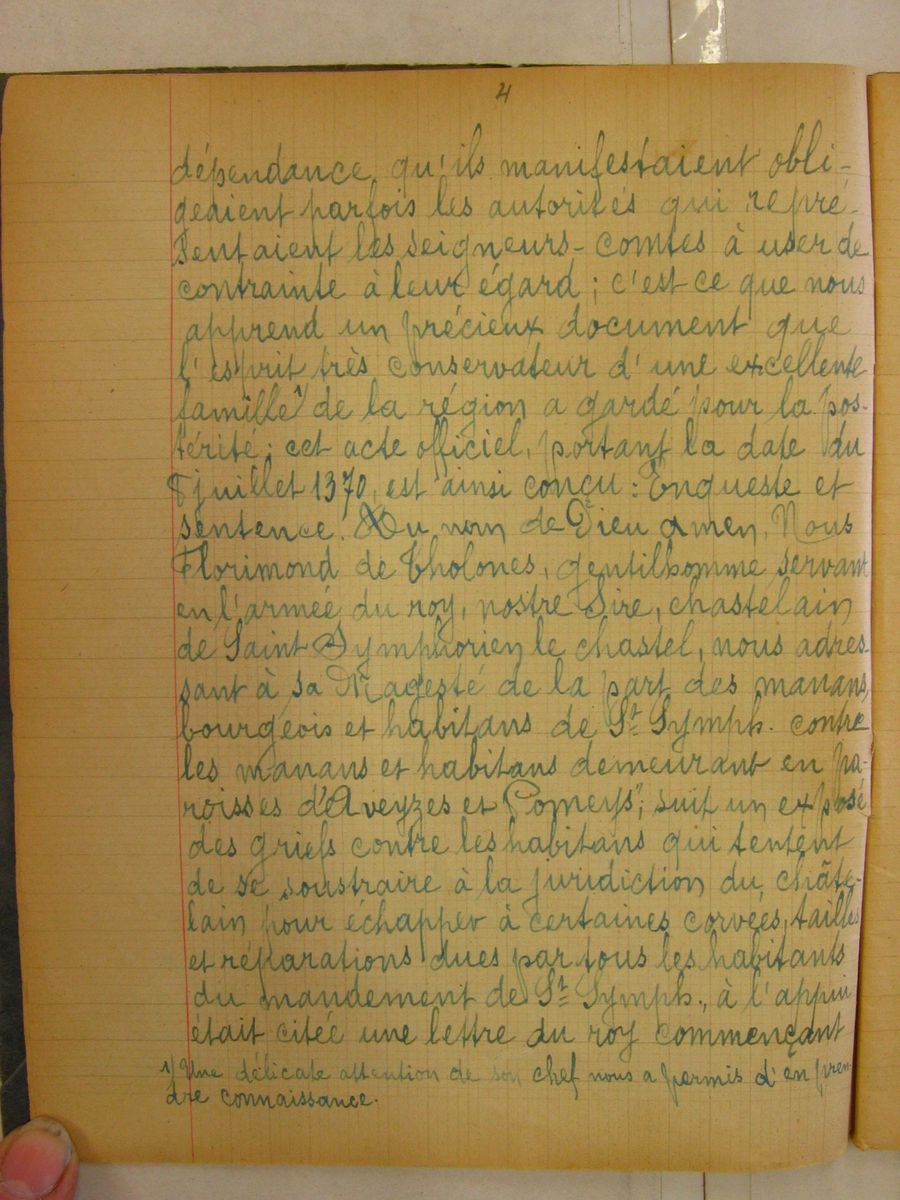 4
dépendance qu'ils manifestaient obli-
geaient parfois les autorités qui repré-
sentaient les seigneurs-comtes à user de
contrainte à leur égard ; c'est ce que nous
apprend un précieux document que
l'esprit très conservateur d'une excellente
famille 1) de la région a gardé pour la pos-
térité ; cet acte officiel, portant la date du
8 juillet 1370, est ainsi conçu : Enqueste et
sentence. Du nom de Dieu amen, Nous
Florimond de Tholones, gentilhomme servant
en l'armée du roy, nostre Sire, chastelain
de Saint Symphorien le chastel, nous adres-
sant à sa Magesté de la part des manans,
bourgeois et habitans de St Symph. contre
les manans et habitans demeurant en pa-
roisses d'Aveyzes et Pomeys" ; suit un exposé
des griefs contre les habitans qui tentent
de se soustraire à la juridiction du châte-
lain pour échapper à certaines corvées, tailles
et réparations dues par tous les habitants
du mandement de St Symph., à l'appui
était citée une lettre du roy commençant
1) Une délicate attention de son chef nous a permis d'en pren-
dre connaissance.